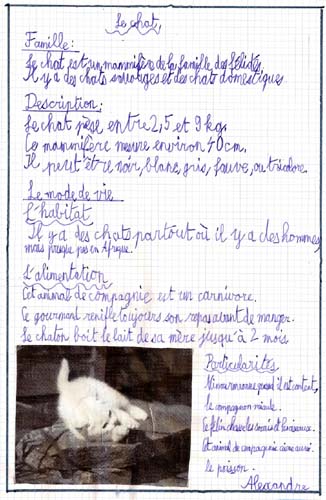 Le chat
Famille:
Le chat est un mammifère de la famille des félidés.
Il y a des chats sauvages et des chats domestiques.
Description:
Le chat pèse entre 2,5 et 9 kg.
Ce mammifère mesure environ 40 cm.
Il peut être noir, blanc, gris, fauve, ou tricolore.
Le mode de vie
L'habitat
Il y a des chats partout où il y a des hommes
mais presque pas en Afrique.
L'alimentation
Cet animal de compagnie est un carnivore.
Ce gourmand renifle toujours son repas avant de manger.
Le chaton boit le lait de sa mère jusqu'à 2 mois
Particularités
ronronne quand il est content,
le compagnon miaule.
le félin chasse les souris et les oiseaux.
Cet animal de compagnie aime aussi
le poisson.
Alexandre